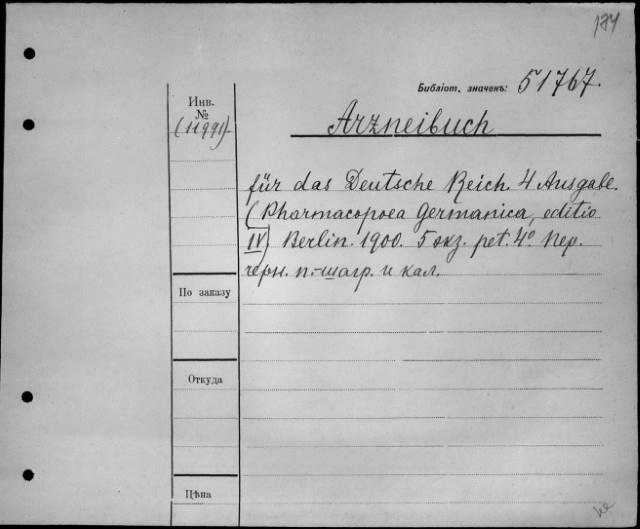 184
Библіот. значекъ: 51767.
Инв.
№
(11991)
Arzneibuch
für das Deutsche Reich. 4 Ausgabe.
(Pharmacopoea Germanica, editio
IV) Berlin. 1900. 5 экз. pet. 4º Пер.
черн. п.-шагр. и кал.
По заказу
Откуда
Цѣна